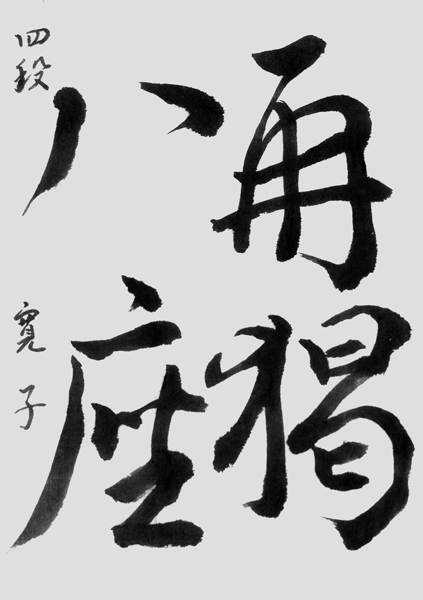 再
八座
四段 寛子